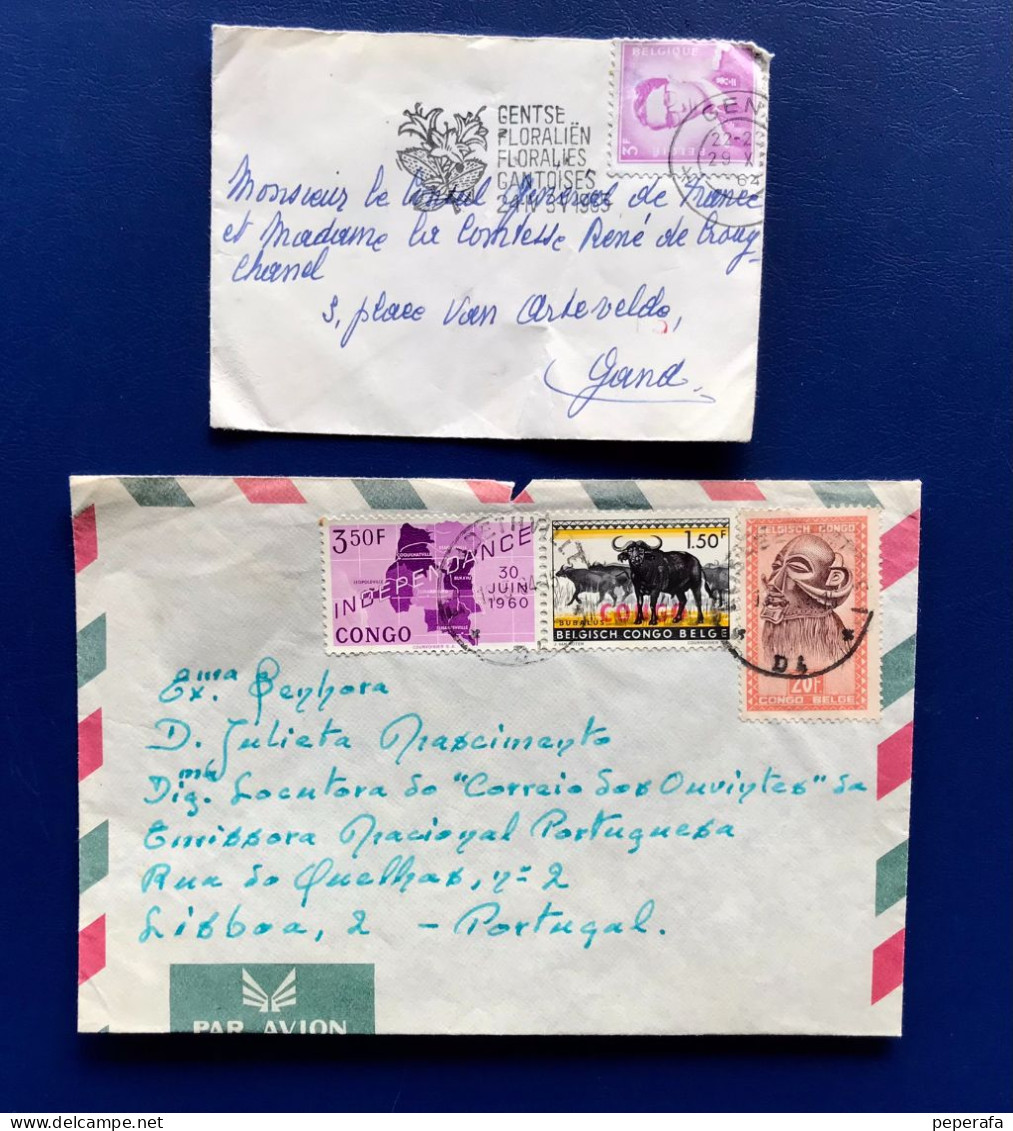 BELGIQUE
3F
BELGIË
GENT
22-2
29 X
64
GENTSE
FLORALIËN
FLORALIES
GANTOISES
24 IV 3 V 1965
Monsieur le Consul Général de France
et Madame la Comtesse René de Crouy-
Chanel
3, place Van Artevelde,
Gand
3.50F
INDEPENDANCE
30
JUIN
1960
CONGO
1.50F
CONGO
BUBALUS
BELGISCH CONGO BELGE
BELGISCH CONGO
20F
CONGO BELGE
D4
Exma Senhora
D. Julieta Nascimento
Digma Locutora do "Correio dos Ouvintes" da
Emissora Nacional Portuguesa
Rua do Quelhas, nº 2
Lisboa, 2 - Portugal.
PAR AVION
peperafa